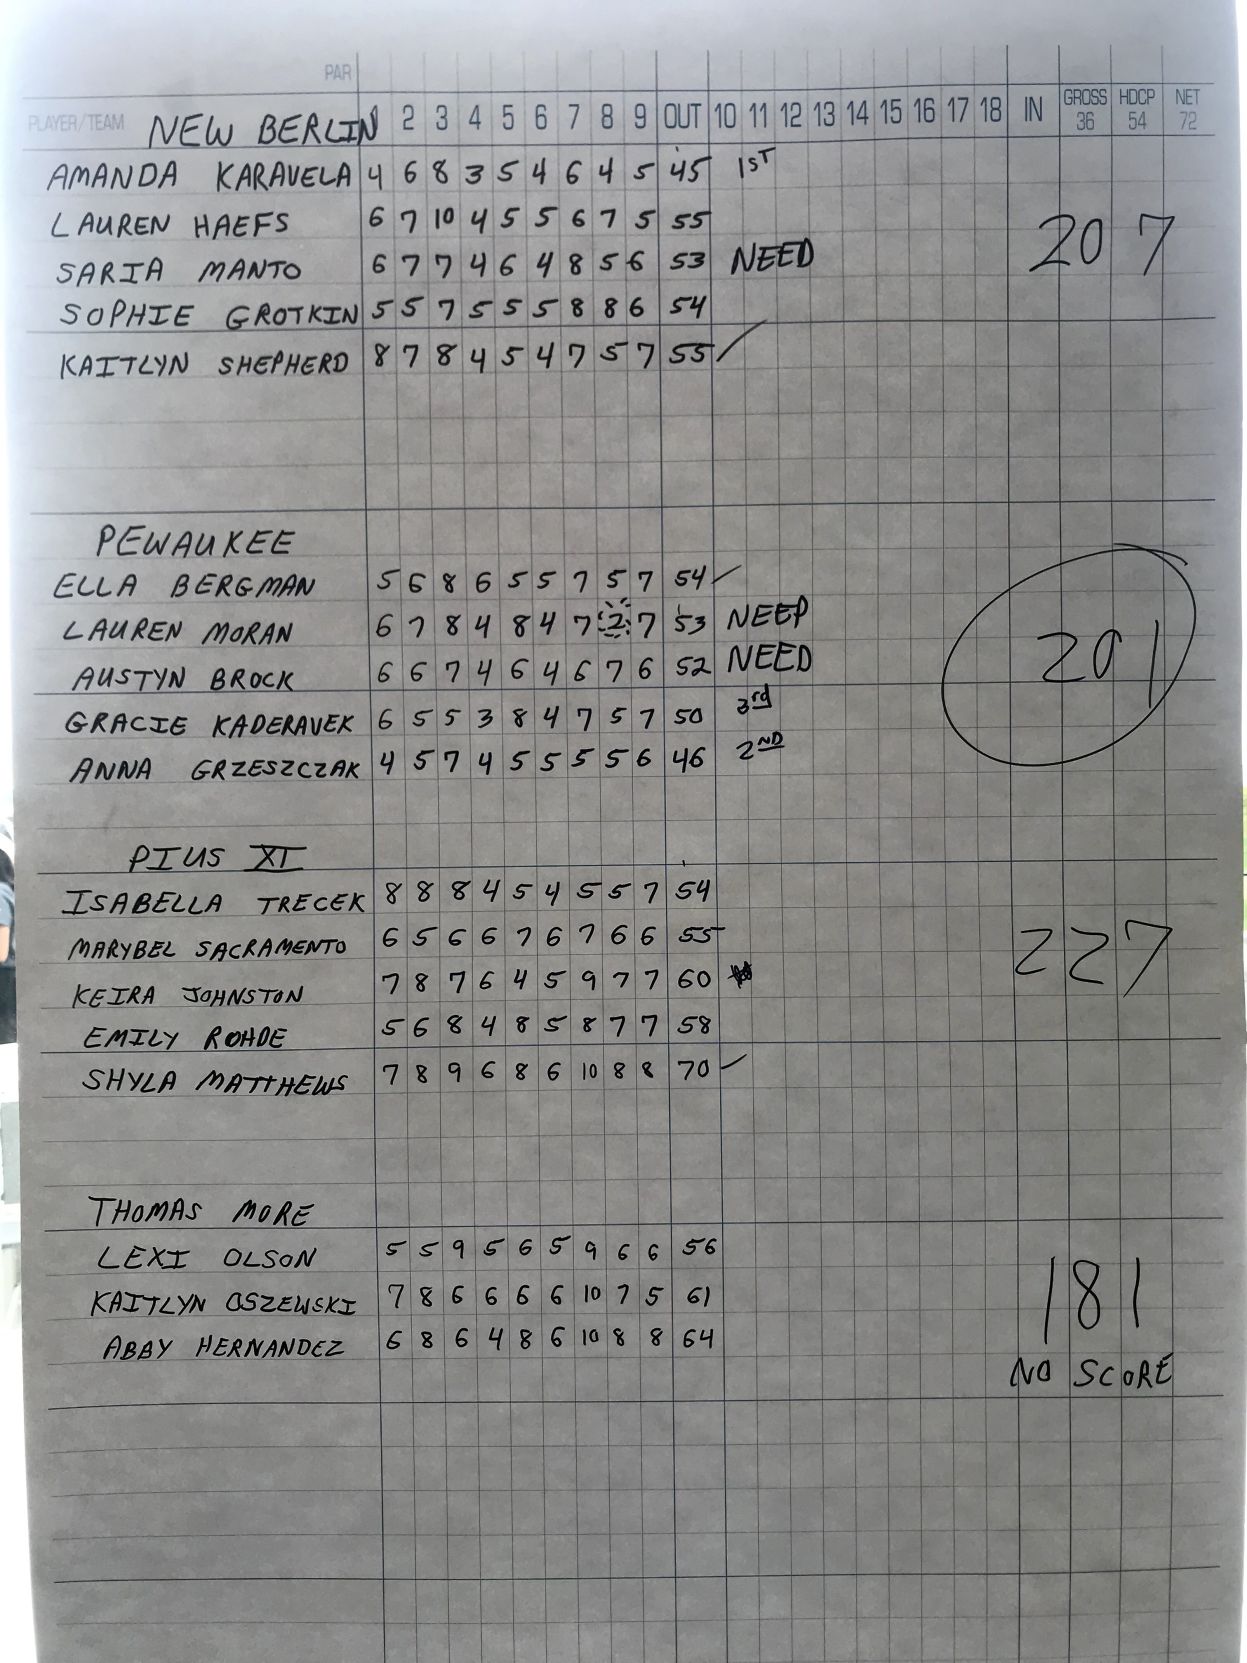 PAR
PLAYER/TEAM NEW BERLIN 1 2 3 4 5 6 7 8 9 OUT 10 11 12 13 14 15 16 17 18 IN GROSS 36 HDCP 54 NET 72
AMANDA KARAVELA 4 6 8 3 5 4 6 4 5 45 1ST
LAUREN HAEFS 6 7 10 4 5 5 6 7 5 55
207
SARIA MANTO 6 7 7 4 6 4 8 5 6 53 NEED
SOPHIE GROTKIN 5 5 7 5 5 5 8 8 6 54
KAITLYN SHEPHERD 8 7 8 4 5 4 7 5 7 55
PEWAUKEE
ELLA BERGMAN 5 6 8 6 5 5 7 5 7 54
LAUREN MORAN 6 7 8 4 8 4 7 2 7 53 NEED
201
AUSTYN BROCK 6 6 7 4 6 4 6 7 6 52 NEED
GRACIE KADERAVEK 6 5 5 3 8 4 7 5 7 50 3rd
ANNA GRZESZCZAK 4 5 7 4 5 5 5 5 6 46 2ND
PIUS XI
ISABELLA TRECEK 8 8 8 4 5 4 5 5 7 54
MARYBEL SACRAMENTO 6 5 6 6 7 6 7 6 6 55
227
KEIRA JOHNSTON 7 8 7 6 4 5 9 7 7 60
EMILY ROHDE 5 6 8 4 8 5 8 7 7 58
SHYLA MATTHEWS 7 8 9 6 8 6 10 8 8 70
THOMAS MORE
LEXI OLSON 5 5 9 5 6 5 9 6 6 56
KAITLYN OSZEWSKI 7 8 6 6 6 6 10 7 5 61
181
ABBY HERNANDEZ 6 8 6 4 8 6 10 8 8 64
NO SCORE